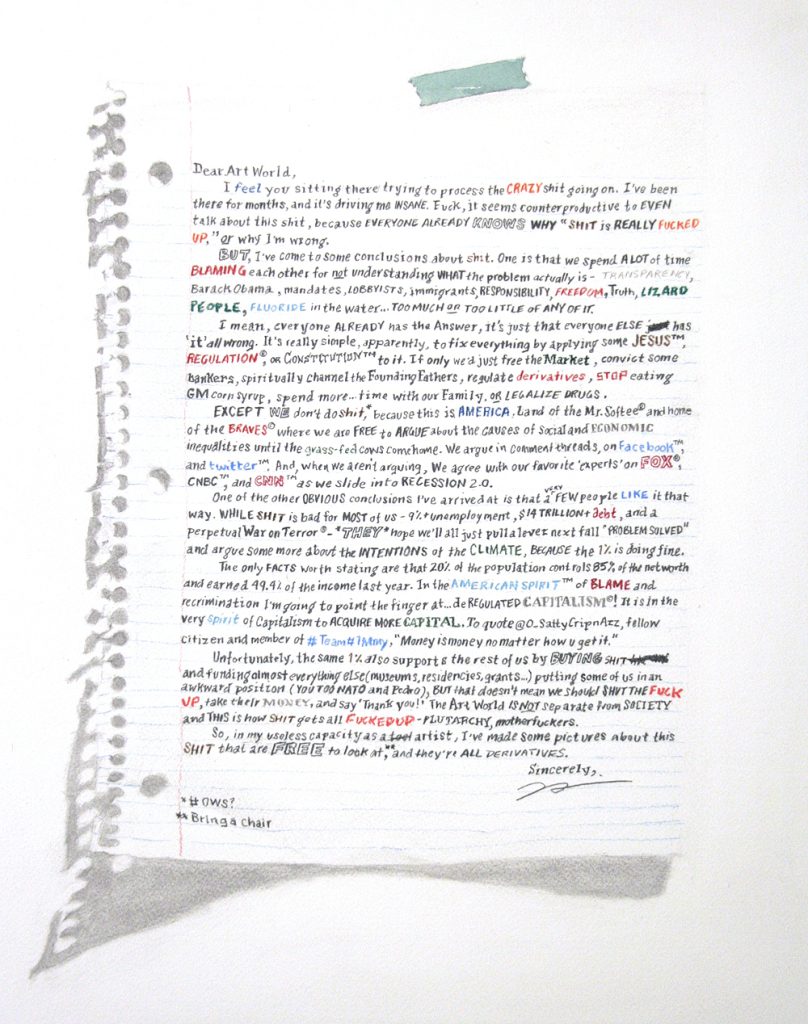 Dear Art World,
I feel you sitting there trying to process the CRAZY shit going on. I've been
there for months, and it's driving me INSANE. Fuck, it seems counterproductive to EVEN
talk about this shit, because EVERYONE ALREADY KNOWS WHY "SHIT is REALLY FUCKED
UP," or why I'm wrong.
BUT, I've come to some conclusions about shit. One is that we spend A LOT of time
BLAMING each other for not understanding WHAT the problem actually is - TRANSPARENCY,
Barack Obama, mandates, LOBBYISTS, immigrants, RESPONSIBILITY, FREEDOM, Truth, LIZARD
PEOPLE, FLUORIDE in the water... TOO MUCH or TOO LITTLE OF ANY OF IT.
I mean, everyone ALREADY has the Answer, it's just that everyone ELSE has
'it' all wrong. It's really simple, apparently, to fix everything by applying some JESUS™,
REGULATION©, or CONSTITUTION™ to it. If only we'd just free the Market, convict some
bankers, spiritually channel the Founding Fathers, regulate derivatives, STOP eating
GM corn syrup, spend more... time with our Family, OR LEGALIZE DRUGS.
EXCEPT WE don't do shit,* because this is AMERICA, Land of the Mr. Softee® and home
of the BRAVES© where we are FREE to ARGUE about the CAUSES of Social and ECONOMIC
inequalities until the grass-fed cows come home. We argue in comment threads, on Facebook™,
and twitter™. And, when we aren't arguing, We agree with our favorite 'experts' on FOX®,
CNBC™, and CNN™ as we slide into RECESSION 2.0.
One of the other OBVIOUS conclusions I've arrived at is that a very FEW people LIKE it that
way. WHILE SHIT is bad for MOST of us - 9%+ unemployment, $14 TRILLION+ debt, and a
perpetual War on Terror® - *THEY* hope we'll all just pull a lever next fall "PROBLEM SOLVED"
and argue some more about the INTENTIONS of the CLIMATE, BECAUSE the 1% is doing fine.
The only FACTS worth stating are that 20% of the population controls 85% of the networth
and earned 49.4% of the income last year. In the AMERICAN SPIRIT™ of BLAME and
recrimination I'm going to point the finger at... de REGULATED CAPITALISM©! It is in the
very spirit of Capitalism to ACQUIRE MORE CAPITAL. To quote @O_SattyCripnAzz, fellow
citizen and member of #Team#1Mmy, "Money is money no matter how u get it."
Unfortunately, the same 1% also supports the rest of us by BUYING SHIT
and funding almost everything else (museums, residencies, grants...) putting some of us in an
awkward position (YOU TOO NATO and Pedro), BUT that doesn't mean we should SHUT THE FUCK
UP, take their MONEY, and say 'Thank you!' The Art World IS NOT separate from SOCIETY
and THIS is how SHIT gets all FUCKED UP - PLUTARCHY, motherfuckers.
So, in my useless capacity as a artist, I've made some pictures about this
SHIT that are FREE to look at,** and they're ALL DERIVATIVES.
Sincerely,
*# OWS?
** Bring a chair